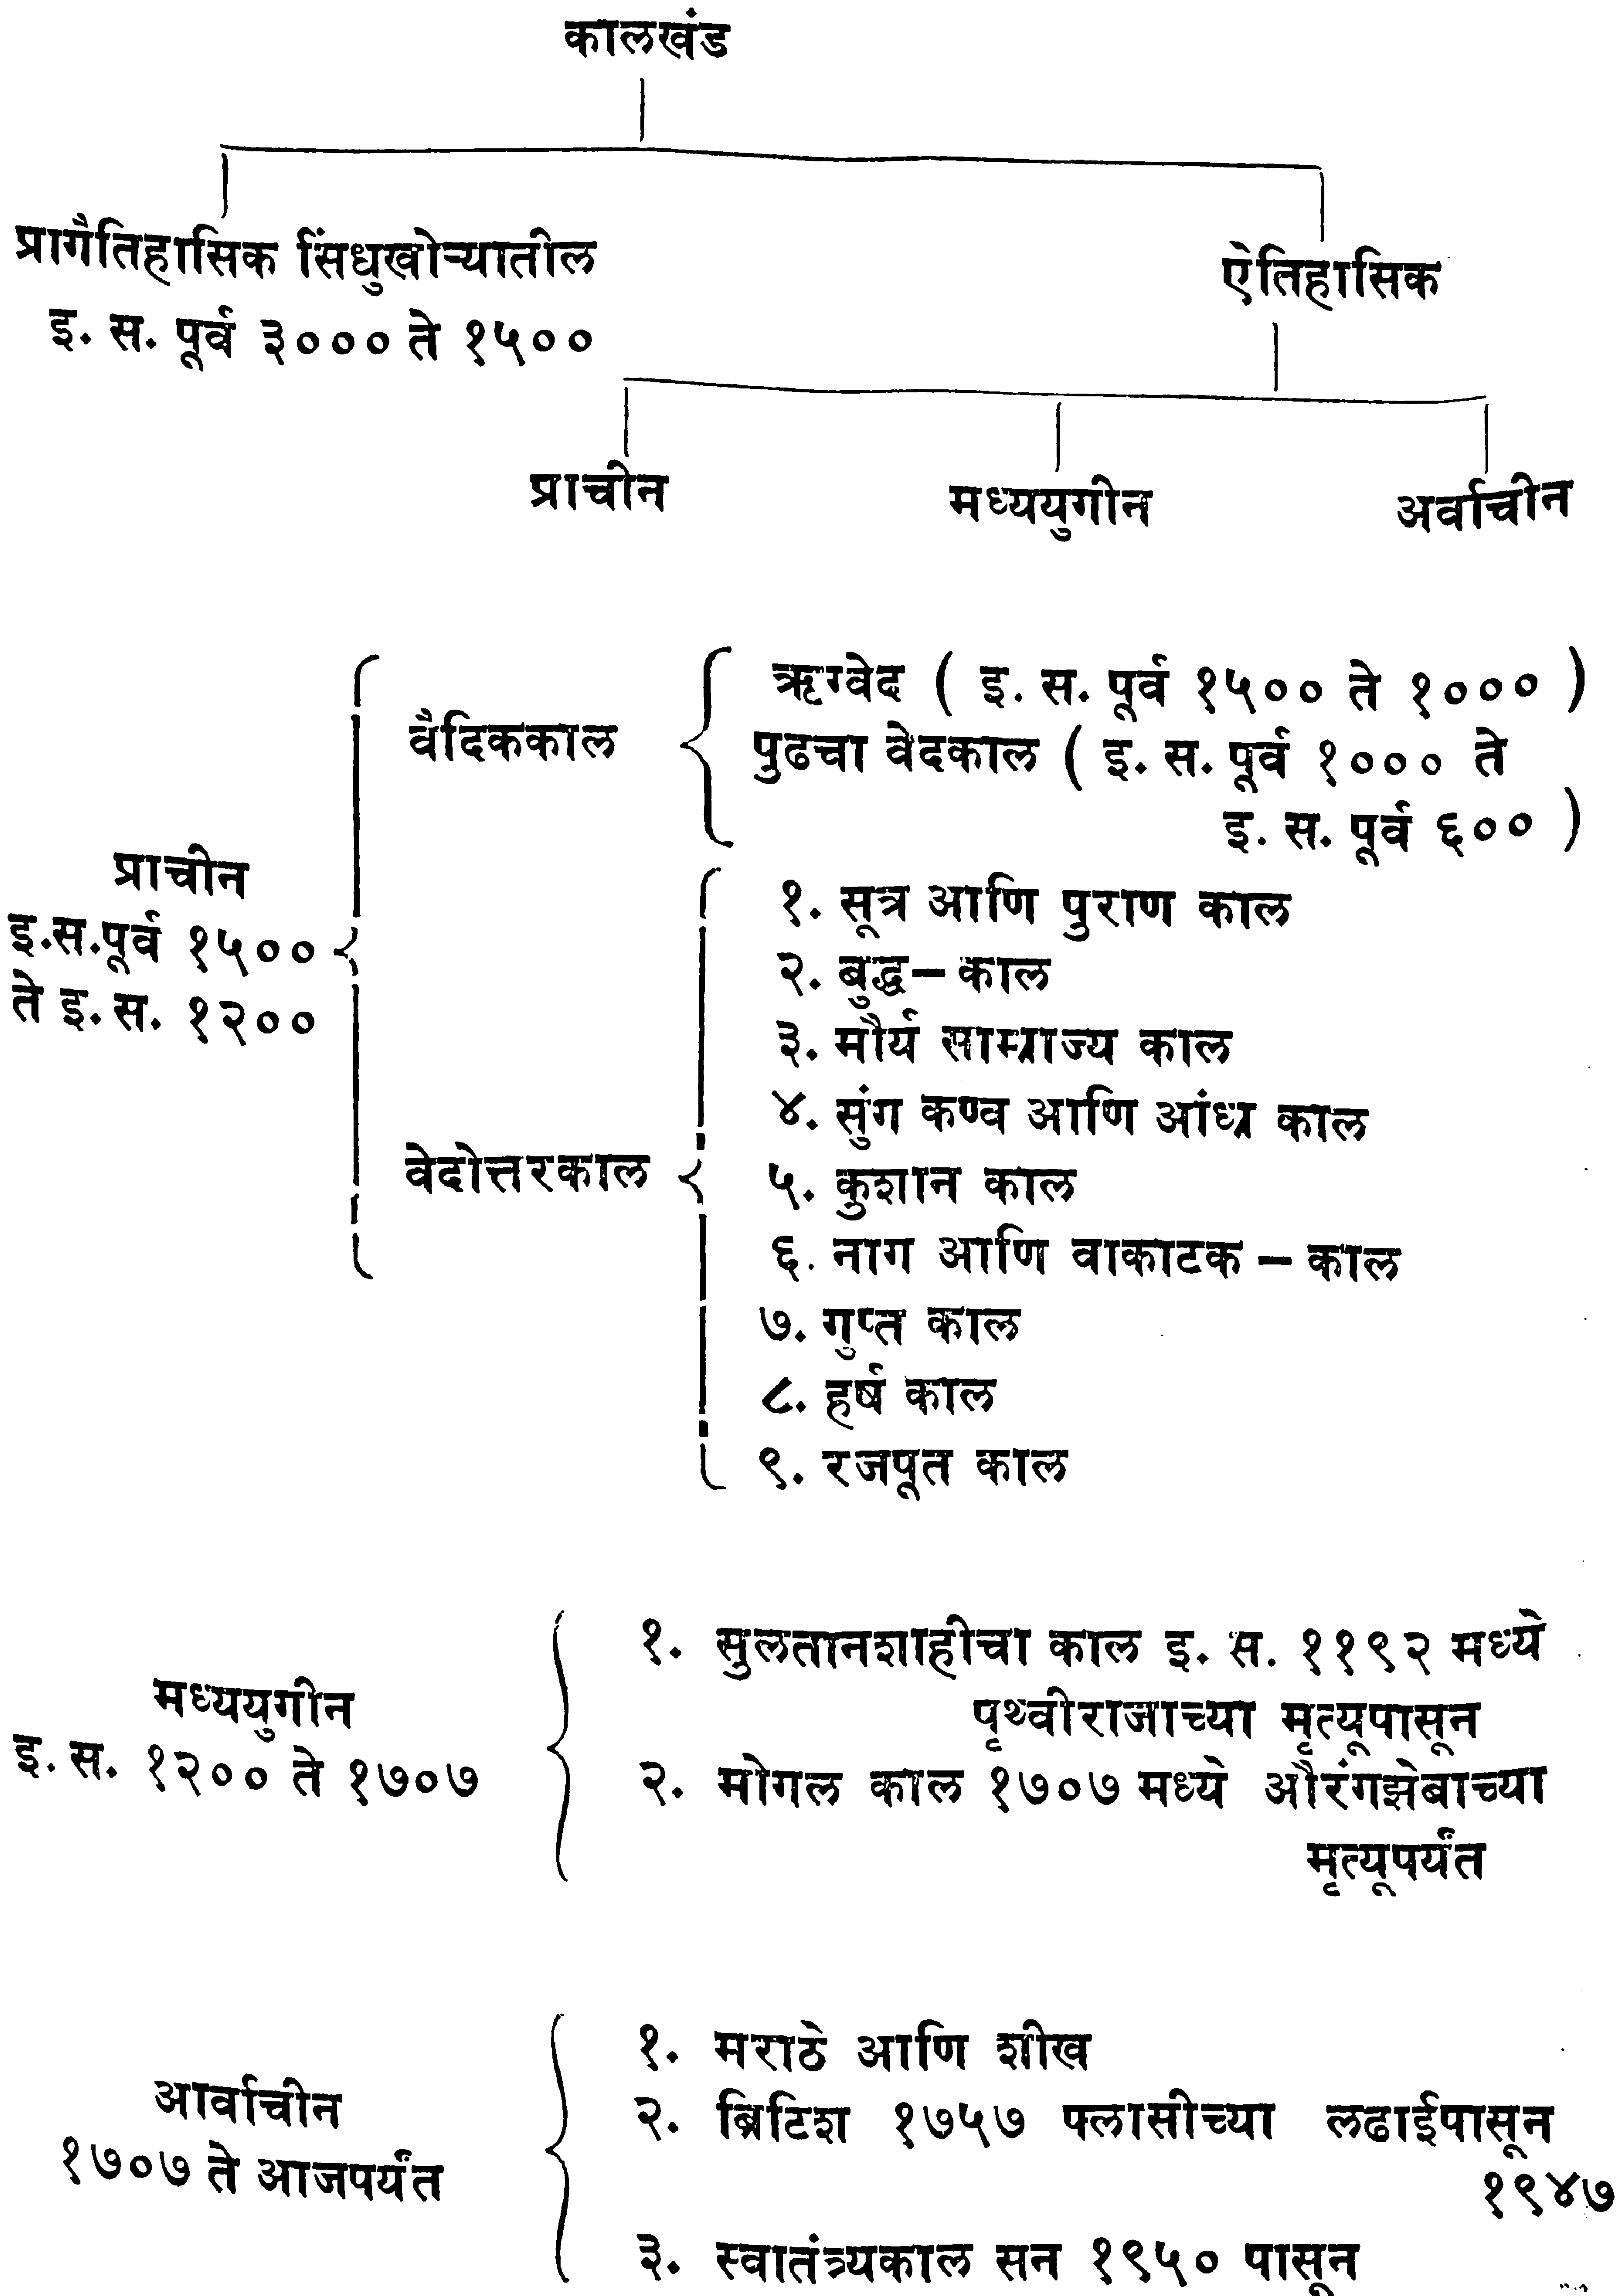 कालखंड
प्रागैतिहासिक सिंधुखोऱ्यातील
इ. स. पूर्व ३००० ते १५००
ऐतिहासिक
प्राचीन मध्ययुगीन अर्वाचीन
प्राचीन
इ.स.पूर्व १५००
ते इ. स. १२००
वैदिककाल
ऋग्वेद ( इ. स. पूर्व १५०० ते १००० )
पुढचा वेदकाल ( इ. स. पूर्व १००० ते
इ. स. पूर्व ६०० )
वेदोत्तरकाल
१. सूत्र आणि पुराण काल
२. बुद्ध – काल
३. मौर्य साम्राज्य काल
४. सुंग कण्व आणि आंध्र काल
५. कुशान काल
६. नाग आणि वाकाटक – काल
७. गुप्त काल
८. हर्ष काल
९. रजपूत काल
मध्ययुगीन
इ. स. १२०० ते १७०७
१. सुलतानशाहीचा काल इ. स. ११९२ मध्ये
पृथ्वीराजाच्या मृत्यूपासून
२. मोगल काल १७०७ मध्ये औरंगझेबाच्या
मृत्यूपर्यंत
आर्वाचीन
१७०७ ते आजपर्यंत
१. मराठे आणि शीख
२. ब्रिटिश १७५७ फ्लासीच्या लढाईपासून
१९४७
३. स्वातंत्र्यकाल सन १९५० पासून